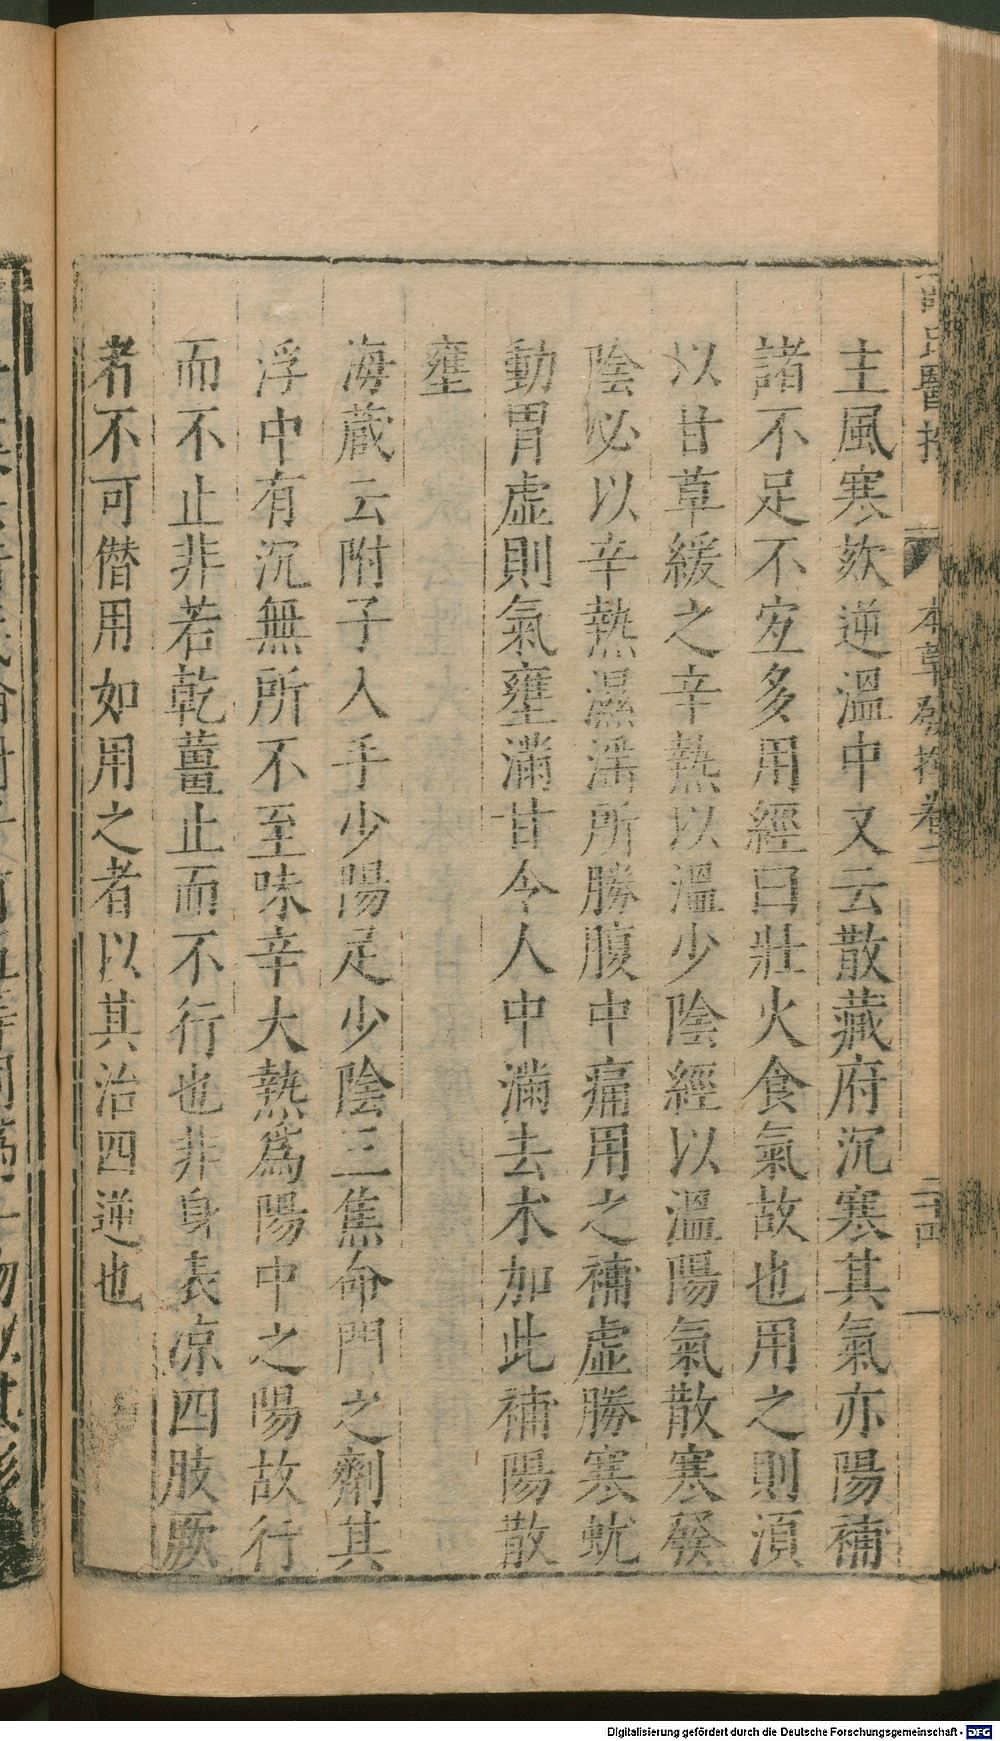 氏醫
本草發揮卷二
二十四
主風寒欬逆溫中又云散藏府沉寒其氣亦陽補
諸不足不宐多用經曰壯火食氣故也用之則湏
以甘草緩之辛熱以溫少陰經以溫陽氣散寒發
陰必以辛熱濕滛所勝腹中痛用之補虛勝寒蚘
動胃虛則氣壅滿甘令人中滿去术加此補陽散
壅
海藏云附子入手少陽足少陰三焦命門之劑其
浮中有沉無所不至味辛大熱爲陽中之陽故行
而不止非若乾薑止而不行也非身表凉四肢厥
者不可僭用如用之者以其治四逆也
Digitalisierung gefördert durch die Deutsche Forschungsgemeinschaft - DFG